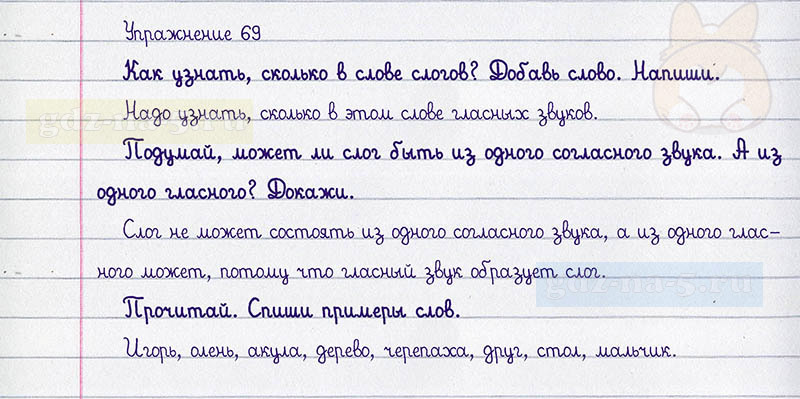 Упражнение 69
Как узнать, сколько в слове слогов? Добавь слово. Напиши.
Надо узнать, сколько в этом слове гласных звуков.
Подумай, может ли слог быть из одного согласного звука. А из
одного гласного? Докажи.
Слог не может состоять из одного согласного звука, а из одного глас-
ного может, потому что гласный звук образует слог.
Прочитай. Спиши примеры слов.
Игорь, олень, акула, дерево, черепаха, друг, стол, мальчик.
gdz-na-5.ru
gdz-na-5.ru